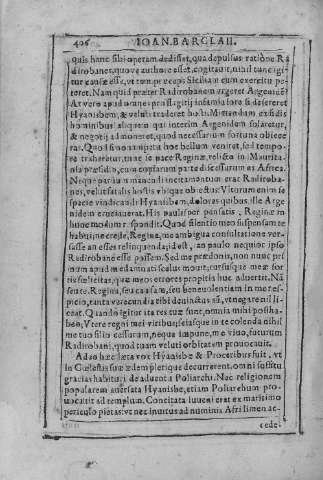 406 IOAN. BARCLAII.
quis hanc sibi operam dedisset, qua depulsus ratione Ra
dirobanes, quove authore esset, cogitavit, nihil tunc igi-
tur causæ esse, vt tempore apti Siciliam cum exercitu pe-
teret. Nam quid præter Radirobanem vrgeret Argenidem?
At vero apud omnes pro flagitij infamia fore si desereret
Hyanisbem, & veluti traderet hosti. Mittendum ex fidis
hominibus aliquem qui interim Argenidem solaretur,
& negotij admoneret, quod necessarium fortuna obiece
rat. Quod si non
traheretur, tum se pace Reginæ, relicto in Maurita-
nia præsidio, cum copiarum parte discessurum ex Africa.
Neque parum animi incitamentum erat Radiroba-
nes, velut fatalis hostis vbique obiectus: Viturum enim se
specie vindicandi Hyanisbem, dolores quibus ille Arge-
nidem cruciauerat. His paulisper pensatis, Reginæ in
hunc modum respondit. Quod silentio meo suspensam te
habui, ne crede, Regina, me ambigua consultatione ver-
sasse an esses relinquenda, id est, an paulo nequior ipso
Radirobane esse possem. Sed me prædonis, non nunc pri
mum apud me damnati scelus mouit, cursusque meæ for
tis
seute. Regina, seu casum, seu beneuolentiam in me res-
picio, tanta verecundia tibi deuinctus sum, vt negare nil li-
ceat. Quando igitur ita res tuæ sunt, omnia mihi posthá-
beo, Vtere regni mei viribus, ets
me tuo filio cessurum, neque impune, me viuo, futurum
Radirobani, quod tuam veluti orbitatem prouocauit.
Adeo hæc læta vox Hyanisbæ & Proceribus fuit, vt
in Cœlestis suæ ædem plerique decurrerent, omni
gratias habituri de aduentu Poliarchi. Nec religionem
popularem auersata Hyanisbe, etiam Poliarchum pro-
uocauit ad templum. Concitata iuueni erat ex maritimo
periculo pietas: vt nec inuitus ad numinis Afri limen ac-
cede-